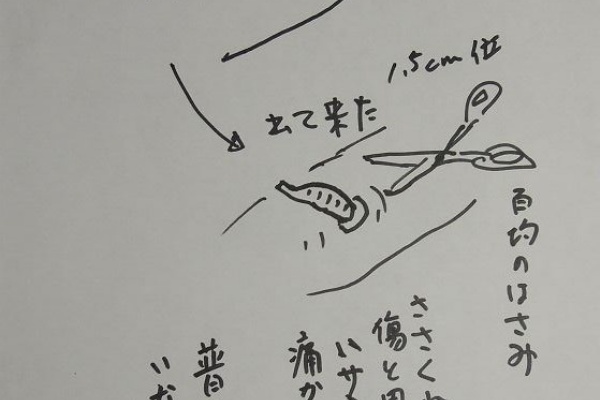 1.5cm位
出て来た
百均のはさみ
ささくれ
傷と思
いサ
痛か
昔
いな